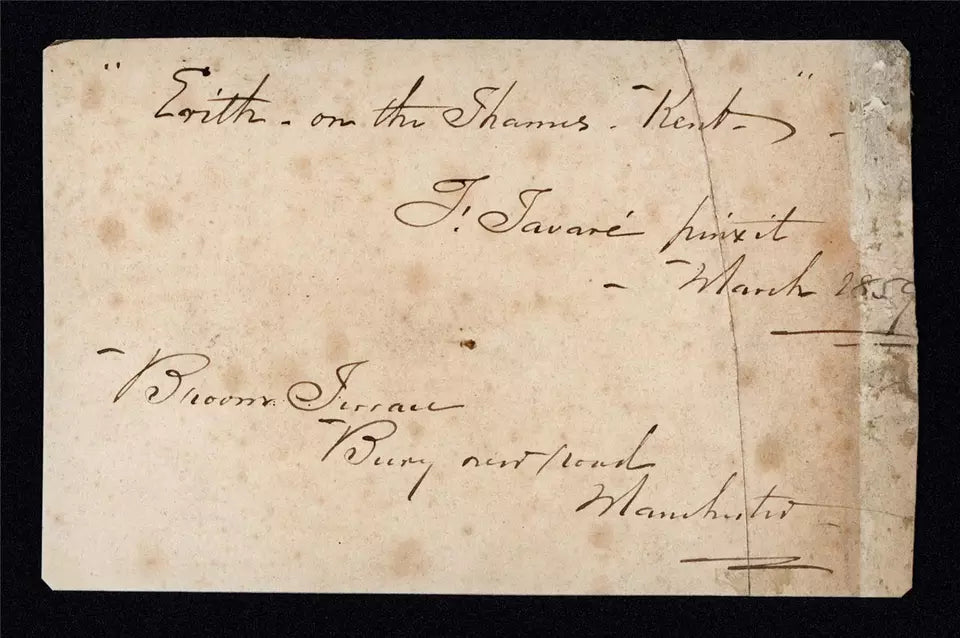 "Erith - on the Thames - Kent - " -
F. Tavaré pinxit
- March 1859
Broom Terrace
Bury new road
Manchester